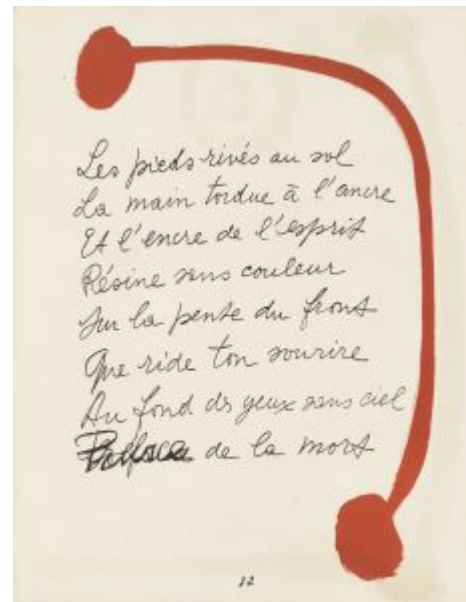 Les pieds rivés au sol
La main tordue à l'ancre
Et l'encre de l'esprit
Résine sans couleur
Sur la pente du front
Que ride ton sourire
Au fond des yeux sans ciel
de la mort
22